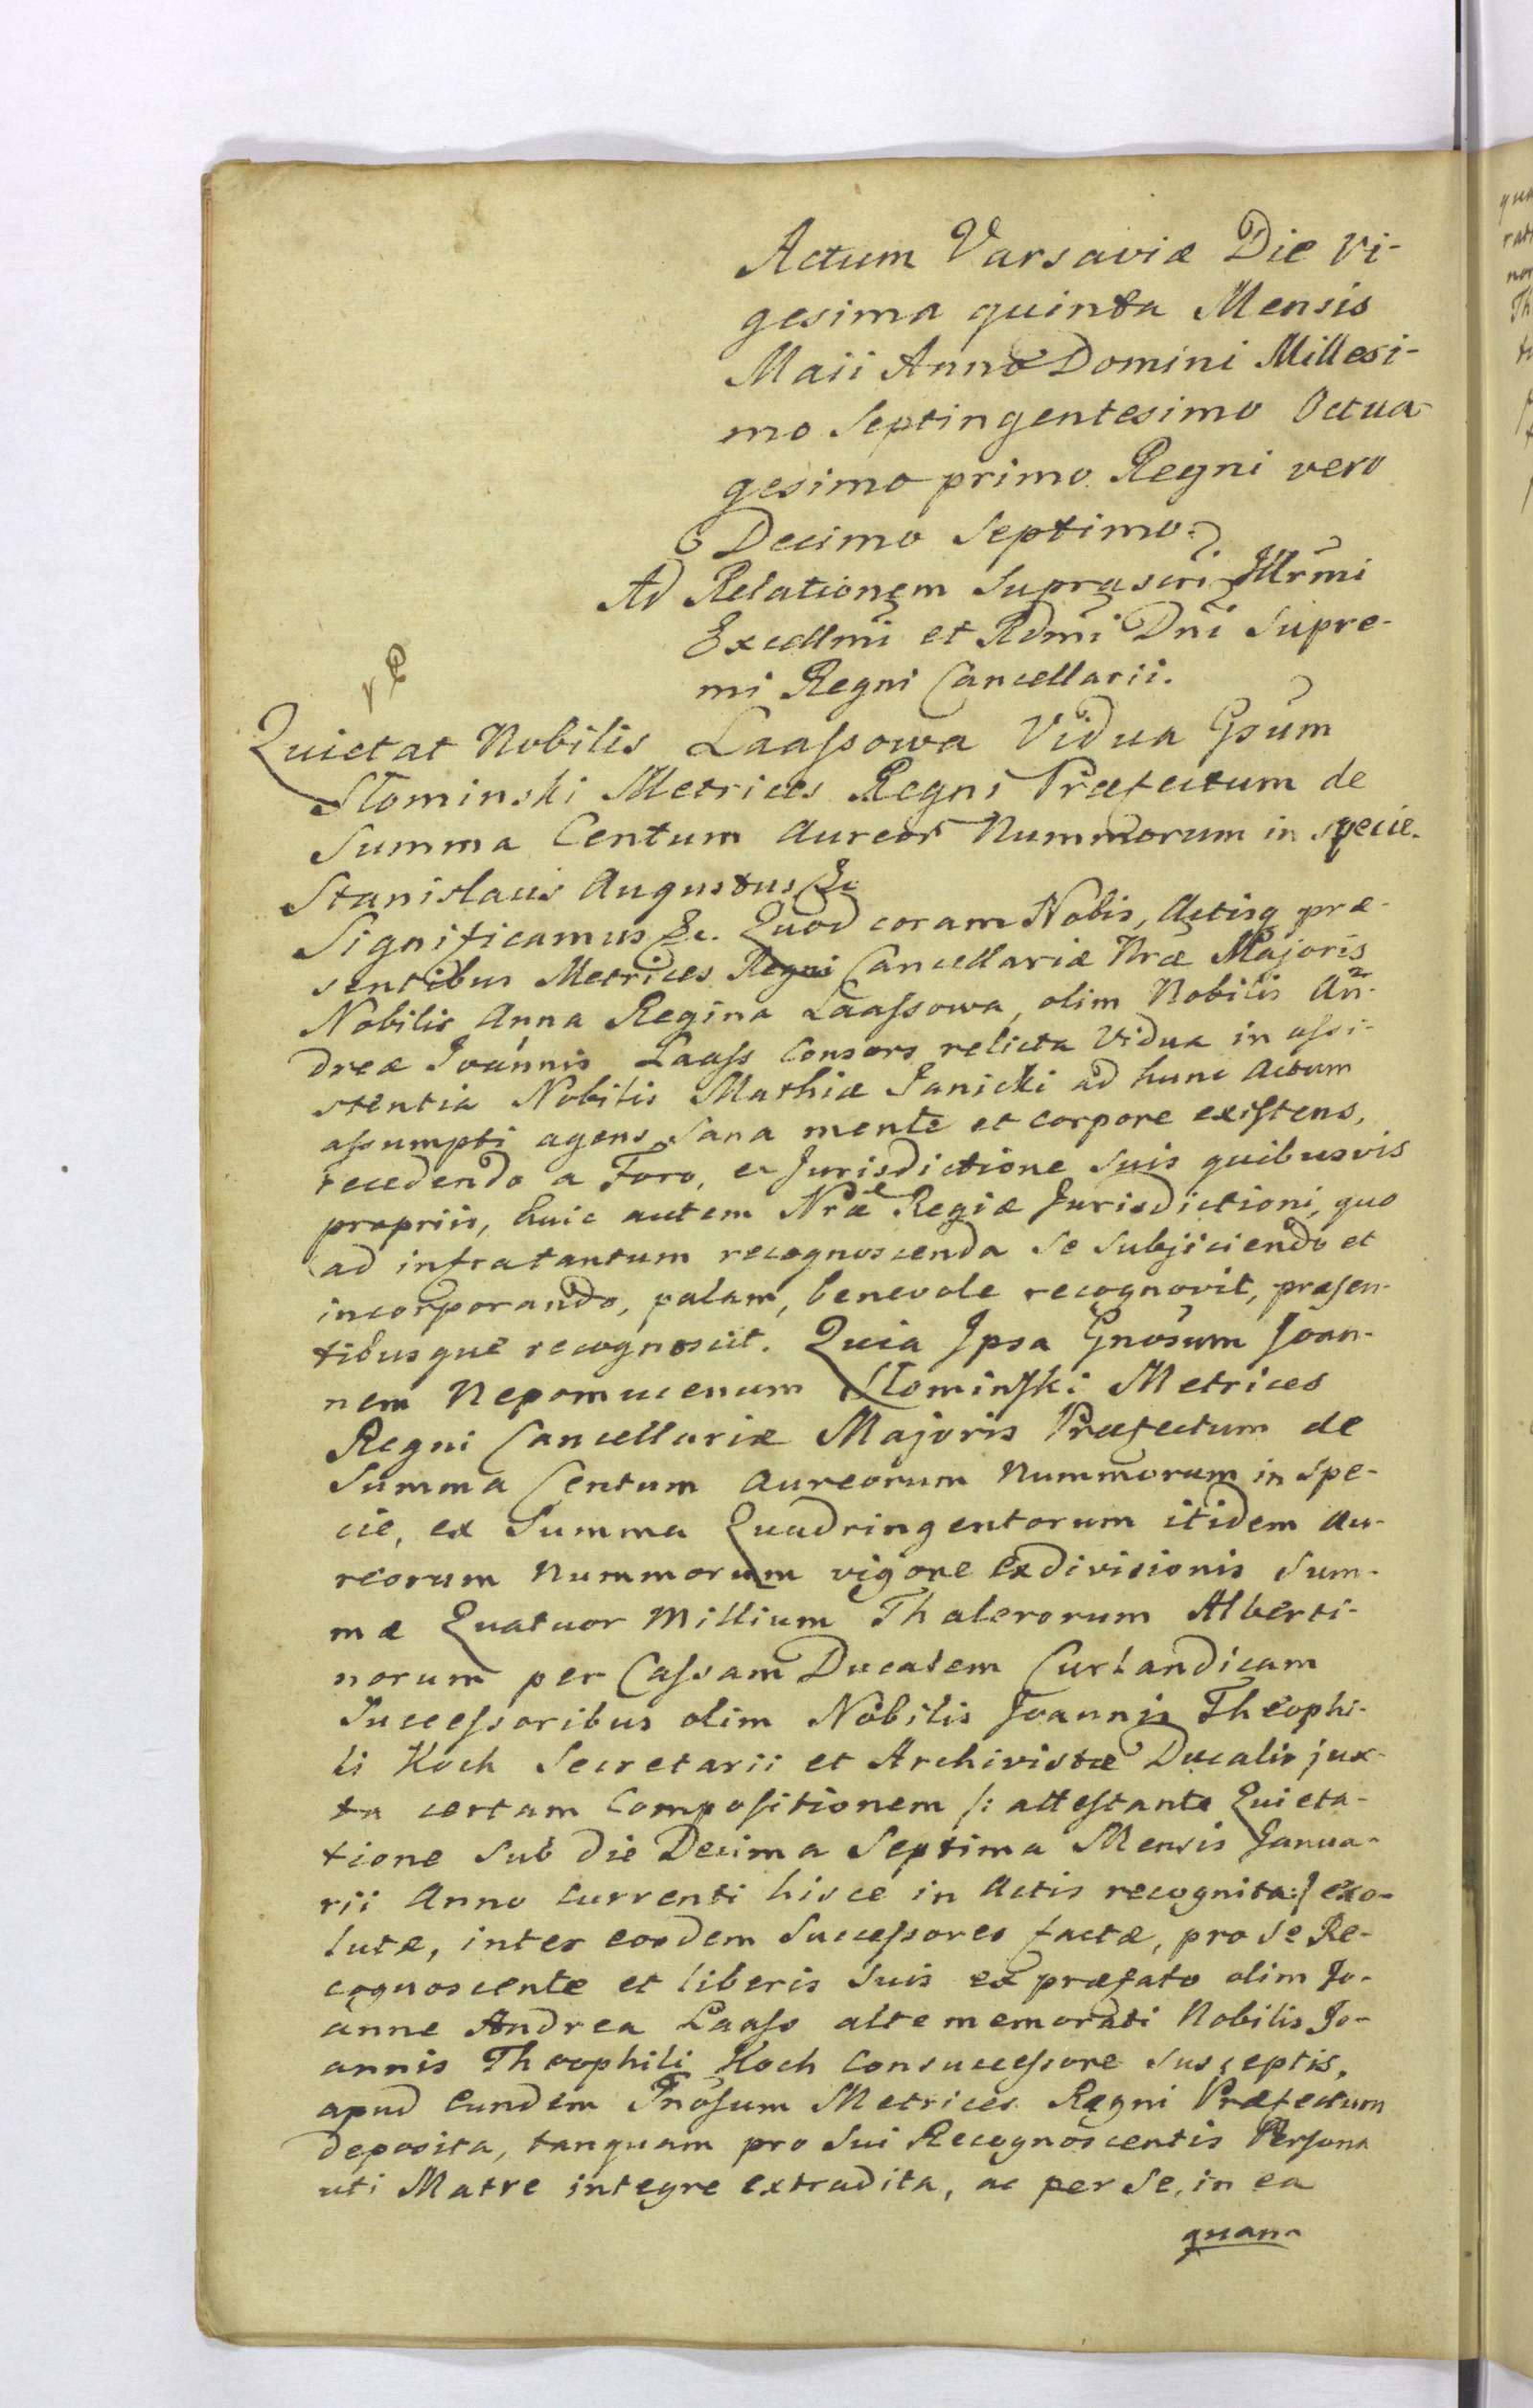 Actum Varsaviæ Die vi-
gesima quinta Mensis
Maii Anno Domini Millesi-
mo Septingentesimo Octua-
gesimo primo Regni vero
Decimo Septimo.
Ad Relationem Suprascri Illrmi
Excellmi et Rdmi Dni Supre-
mi Regni Cancellarii.
Quietat Nobilis Laassowa Vidua Gsum
Słominski Metrices Regni Præfectum de
Summa Centum Aureor Nummorum in specie.
Stanislaus Augustus &c
Significamus &c. Quod coram Nobis, Actisq præ-
sentibus Metrices Regni Cancellariæ Nræ Majoris
Nobilis Anna Regina Laassowa, olim Nobilis An-
dreæ Joannis Laass Consors relicta Vidua in assi-
stentia Nobilis Mathiæ Janicki ad hunc Actum
assumpti agens sana mente et corpore existens,
recedendo a Foro, et Jurisdictione suis quibusvis
propriis, huic autem Nræ Regiæ Jurisdictioni, quo
ad infratantum recognoscenda se subjiciendo et
incorporando, palam, benevole recognovit, præsen-
tibusque recognoscit. Quia Ipsa Gnosum Joan-
nem Nepomucenum Słominski Metrices
Regni Cancellariæ Majoris Præfectum de
Summa Centum Aureorum Nummorum in Spe-
cie, ex Summa Quadringentorum itidem Au-
reorum Nummorum vigore exdivisionis Sum-
mæ Quatuor Millium Thalerorum Alberti-
norum per Cassam Ducalem Curlandicam
Successoribus olim Nobilis Joannis Theophi-
li Koch Secretarii et Archivistæ Ducalis jux-
ta certam Compositionem /: attestante Quieta-
tione Sub die Decima Septima Mensis Janua-
rii Anno Currenti hisce in Actis recognita :/ exo-
lutæ, inter eosdem Successores factæ, pro se Re-
cognoscente et liberis suis ex præfato olim Jo-
anne Andrea Laass alte memorati Nobilis Jo-
annis Theophili Koch Consuccessore susceptis,
apud eundem Gnosum Metrices Regni Præfectum
deposita, tanquam pro sui Recognoscentis Persona
uti Matre integre extradita, ac per se, in ea
quan-